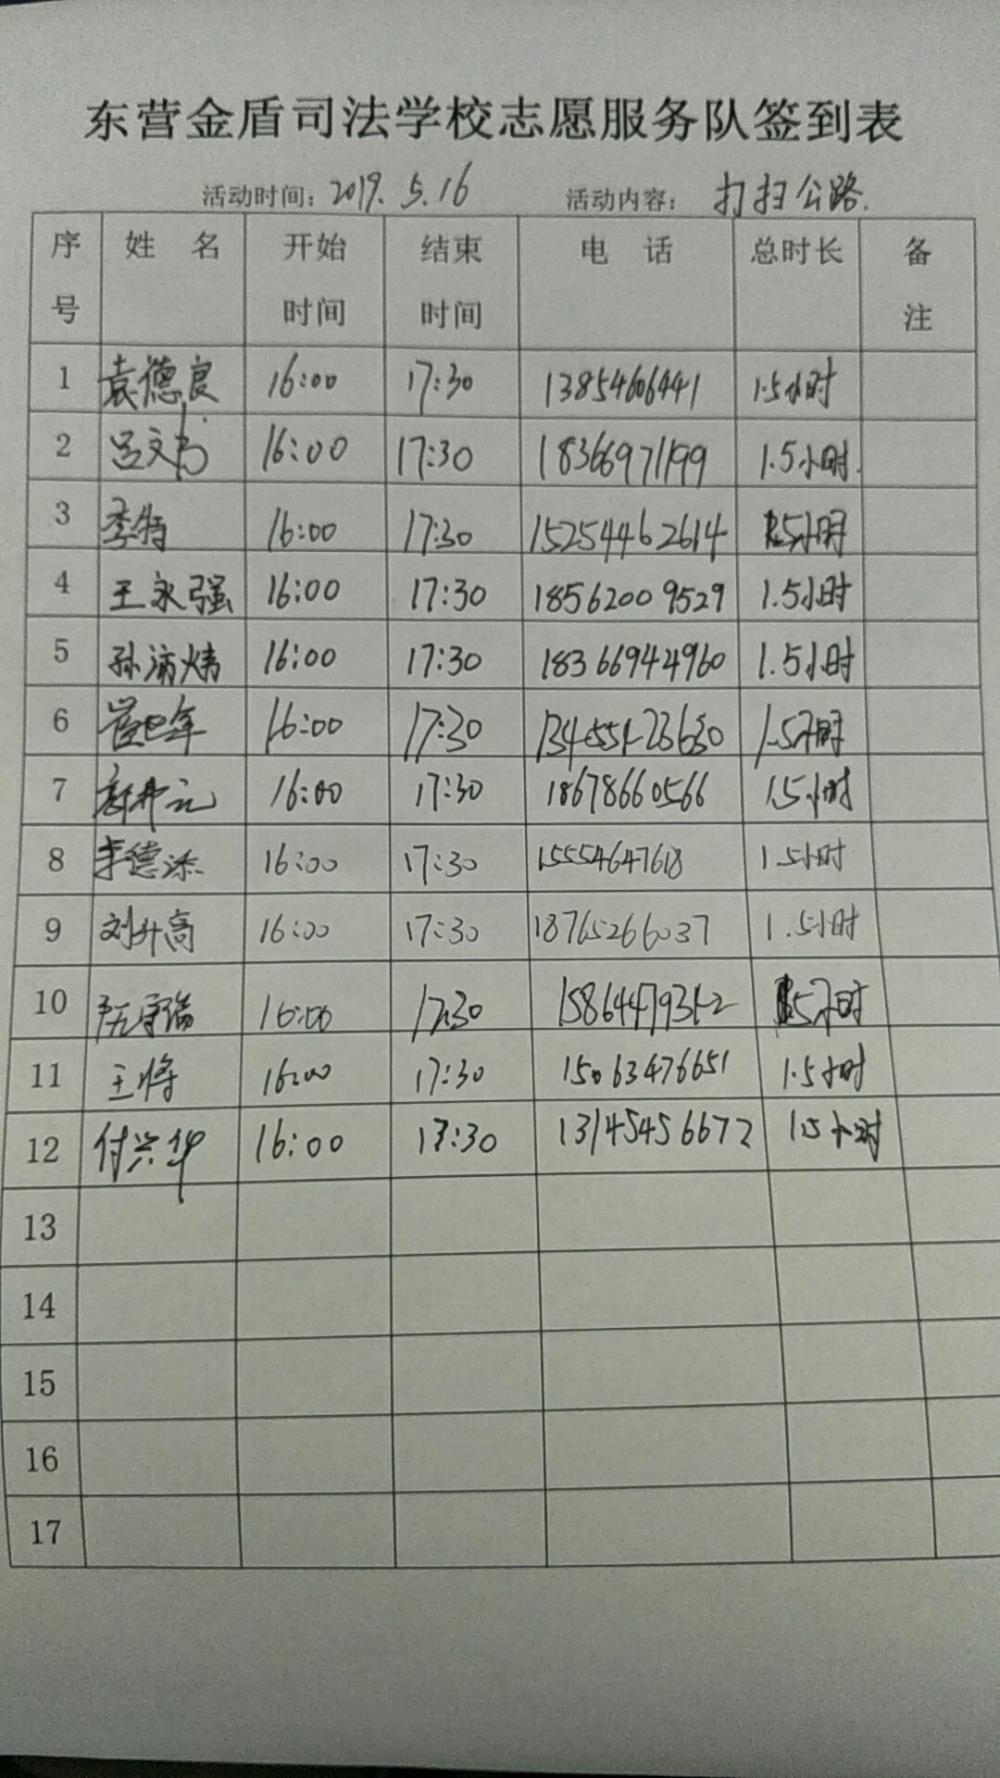 东营金盾司法学校志愿服务队签到表
活动时间：2019.5.16 活动内容：打扫公路.
序号 姓 名 开始时间 结束时间 电 话 总时长 备注
1 袁德良 16:00 17:30 13854606441 1.5小时
2 吕文 16:00 17:30 18366971199 1.5小时.
3 李特 16:00 17:30 15254462614 1.5小时
4 王永强 16:00 17:30 18562009529 1.5小时
5 孙沛炜 16:00 17:30 18366944960 1.5小时
6 16:00 17:30 1.5小时
7 16:00 17:30 18678660566 1.5小时
8 李德 16:00 17:30 15554647618 1.5小时
9 刘升高 16:00 17:30 18765266037 1.5小时
10 16:00 17:30 1.5小时
11 王将 16:00 17:30 15063476651 1.5小时
12 付兴华 16:00 17:30 13145456672 1.5小时
13
14
15
16
17